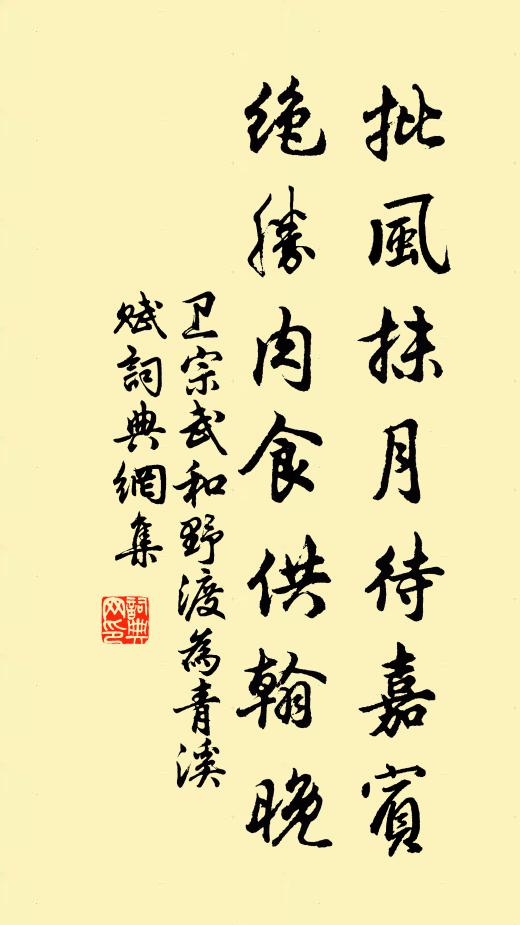 批風抹月待嘉賓
絶勝肉食供翰晚
卫宗武和野渡為青溪
賦詞典網集
詞典网印